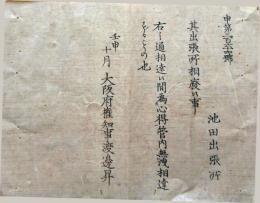 申第三百六号
池田出張所
其出張所相廃候事
右之通相達候間為心得管内無洩相達
するもの也
壬申
十月 大阪府権知事渡邊昇